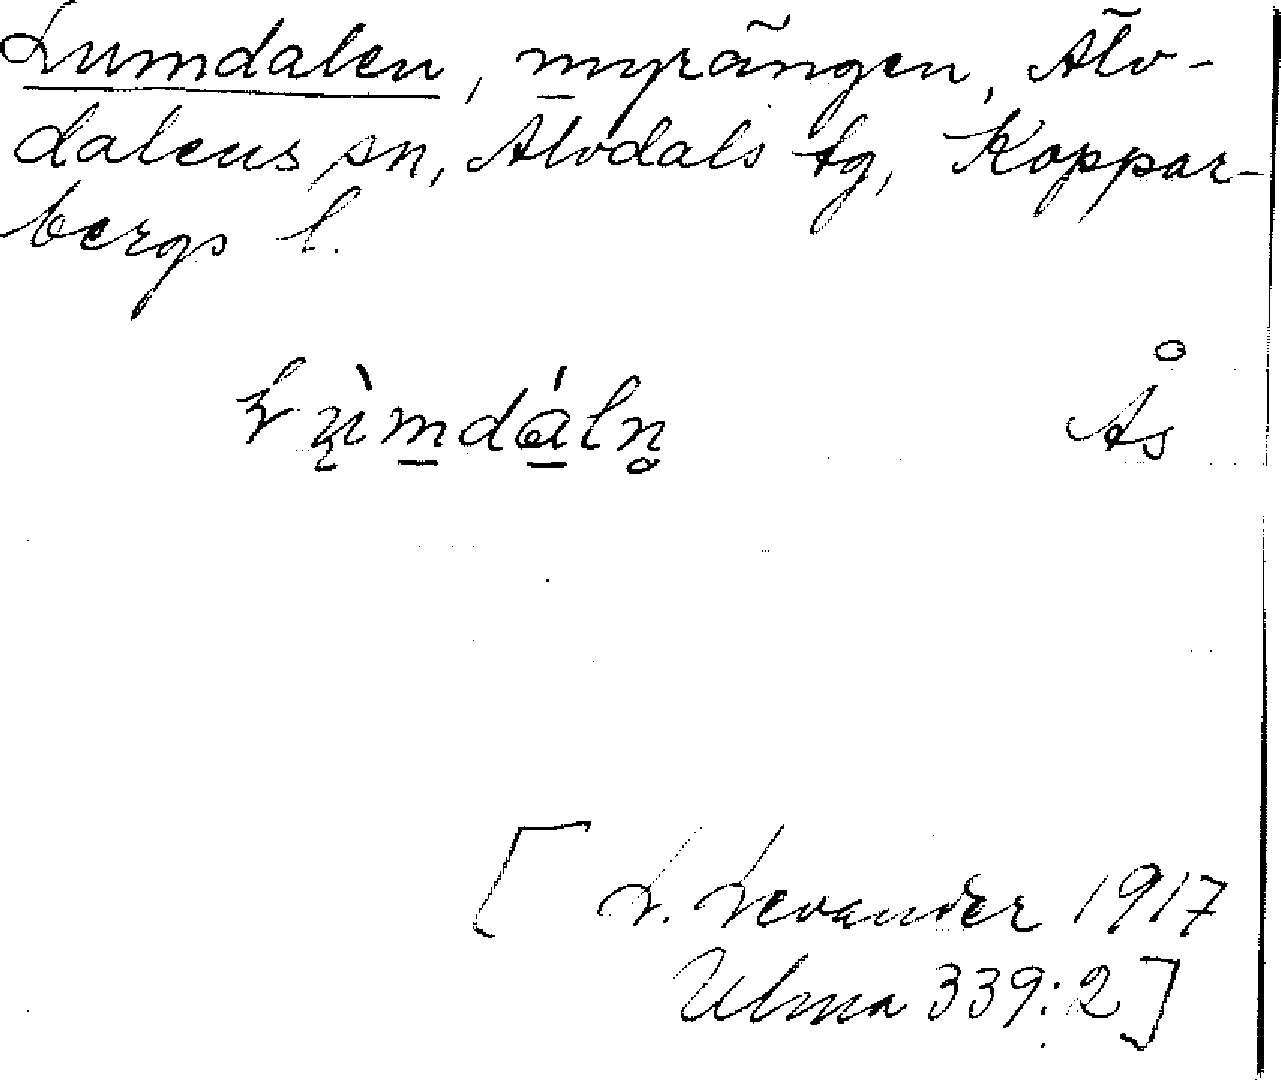 Lumdalen, myrängen, Älv-
dalens sn, Älvdals tg, Koppar-
bergs l.
Lų̀m̱dá̱ln̥ Ås
[L. Levander 1917
Ulma 339:2]